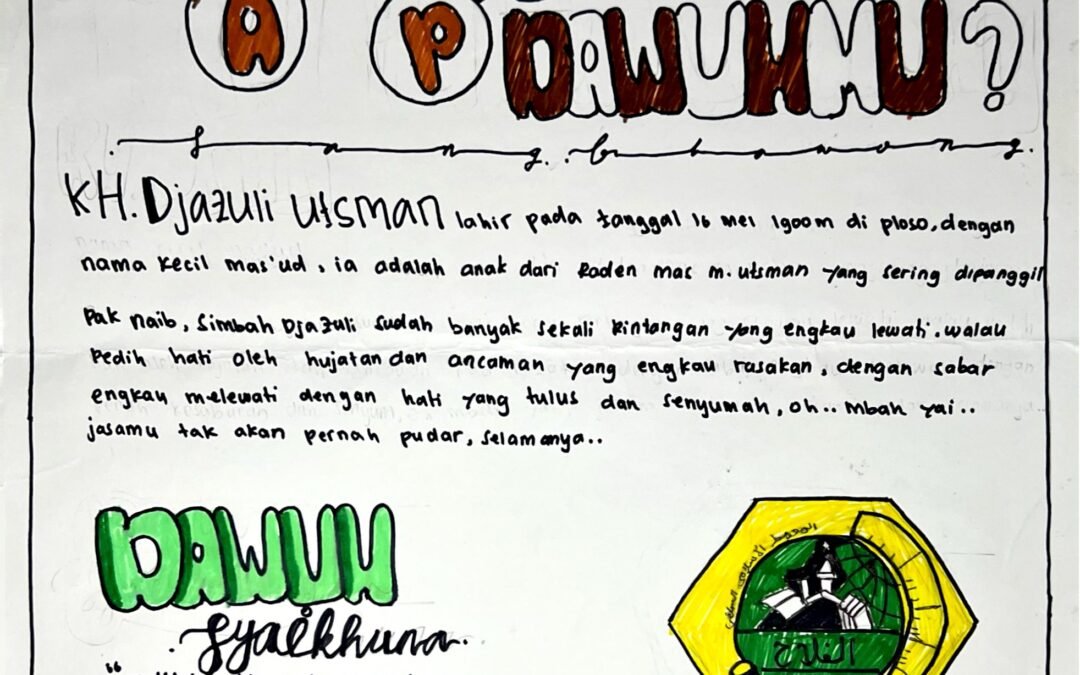 A P DAWUHMU?
Sang guhawong.
KH. Djazuli Utsman lahir pada tanggal 16 mei 1900m di ploso, dengan
nama kecil mas'ud, ia adalah anak dari Raden mas m. utsman yang sering dipanggil
pak naib, simbah Djazuli sudah banyak sekali rintangan yang engkau lewati. walau
pedih hati oleh hujatan dan ancaman yang engkau rasakan, dengan sabar
engkau melewati dengan hati yang tulus dan senyumah, oh.. mbah yai..
jasamu tak akan pernah pudar, selamanya..
DAWUH
Syaikhuna
الفلاح